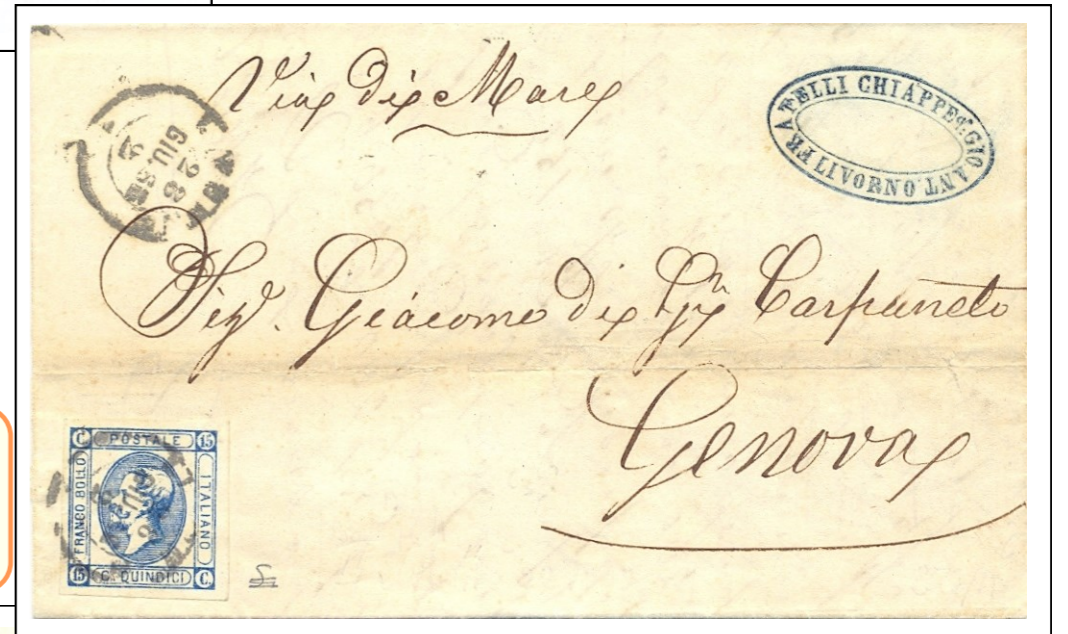 Via di Mare
FRATELLI CHIAPPE
LIVORNO
GIU
Sig. Giacomo di Carpaneto
Genova
C POSTALE 15
FRANCO BOLLO
ITALIANO
15 C. QUINDICI C.